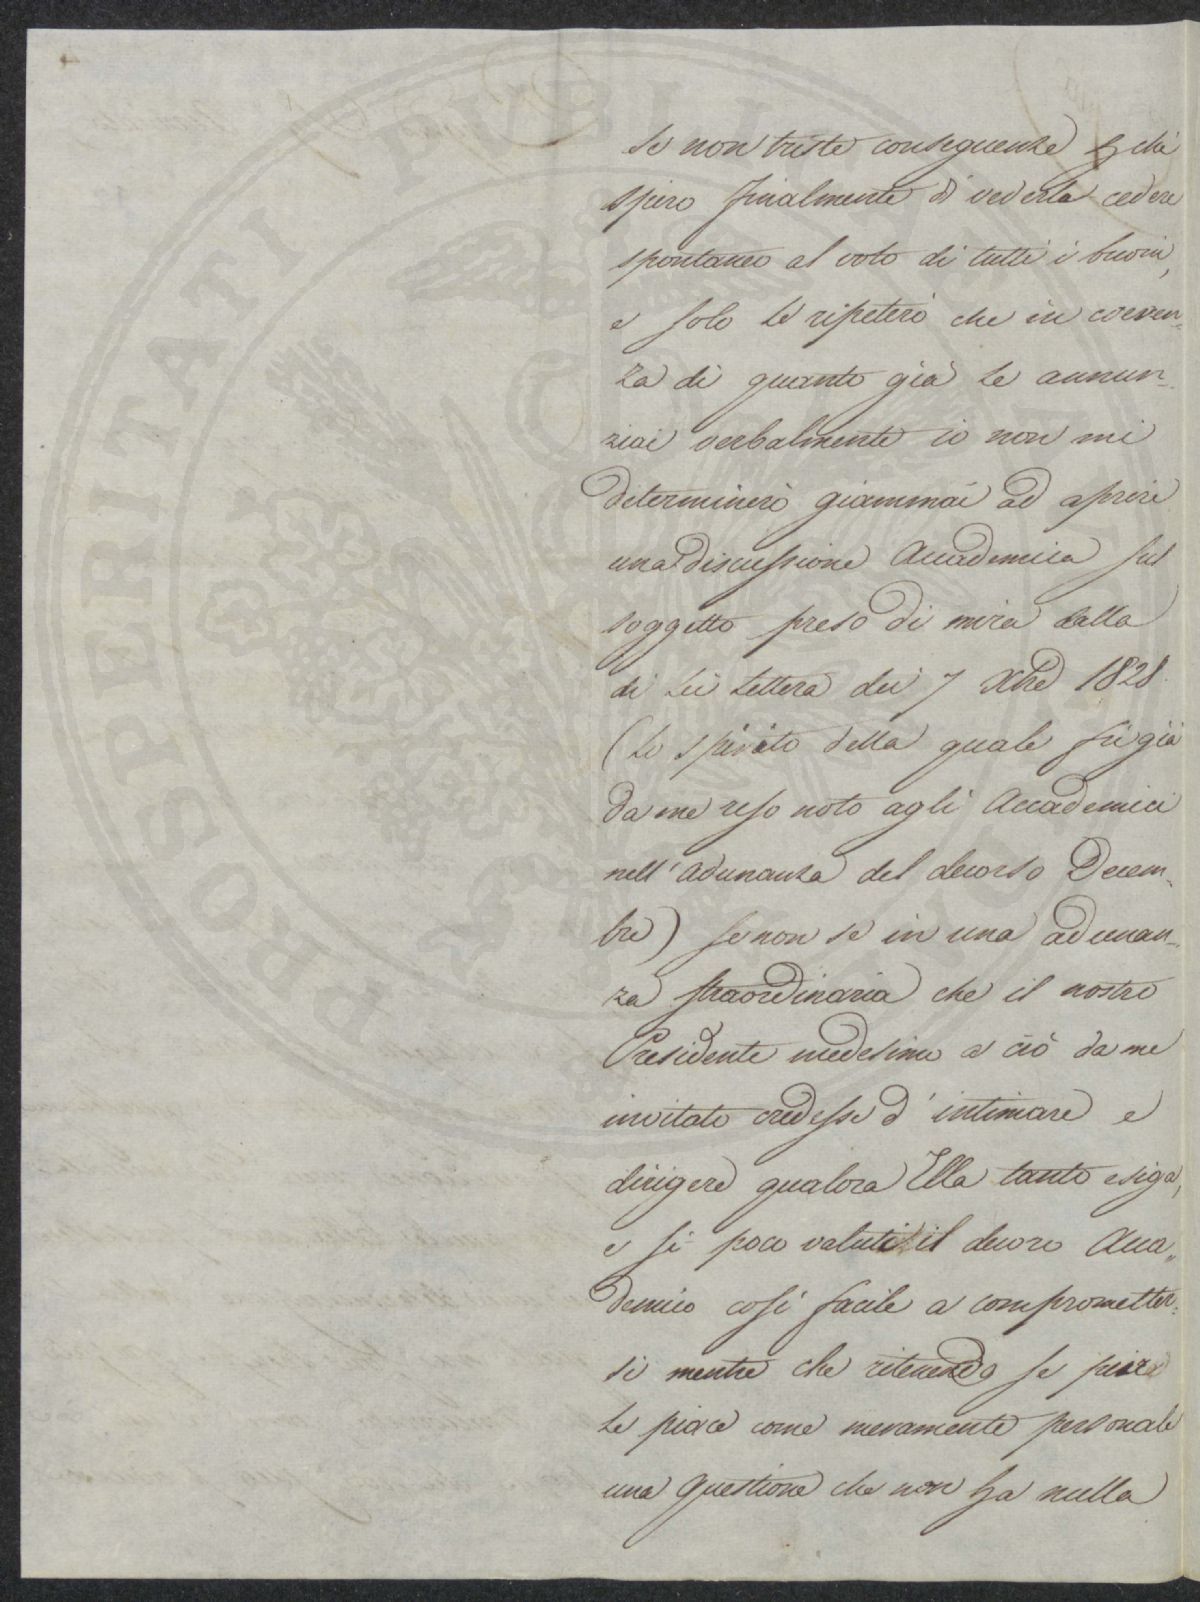 se non triste conseguenze, che
spero finalmente di vederla cedere
spontaneo al voto di tutti i buoni,
e solo le ripeterò che in coeren-
za di quanto già le annun-
ziai verbalmente io non mi
determinerò giammai ad aprire
una discussione Accademica sul
soggetto preso di mira dalla
di Lei Lettera dei 7 Xbre 1828.
(lo spirito della quale fu già
da me reso noto agli Accademici
nell'adunanza del decorso Decem-
bre) se non se in una adunan-
za straordinaria che il nostro
Presidente medesimo a ciò da me
invitato credesse d'intimare e
dirigere qualora Ella tanto esiga,
e sì poco valuti il decoro Acca-
demico così facile a compromettere-
si mentre che ritenendo se pure
le piace come meramente personale
una questione che non ha nulla
PROSPERITATI PUBLI